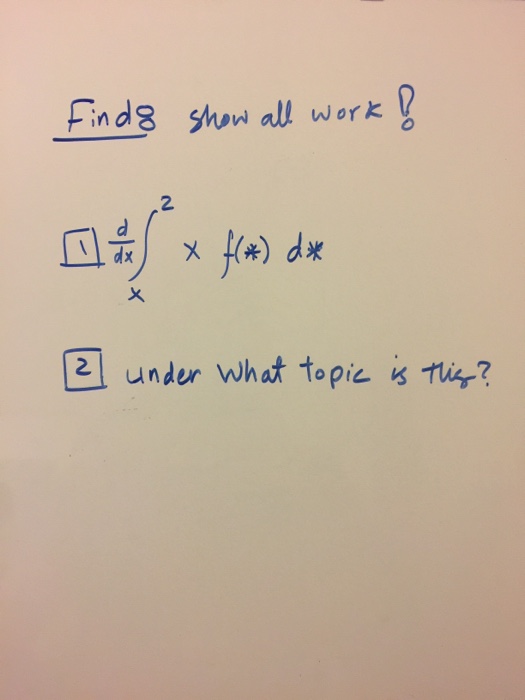 Find: show all work!
1 d/dx ∫_x^2 x f(*) d*
2 under what topic is this?